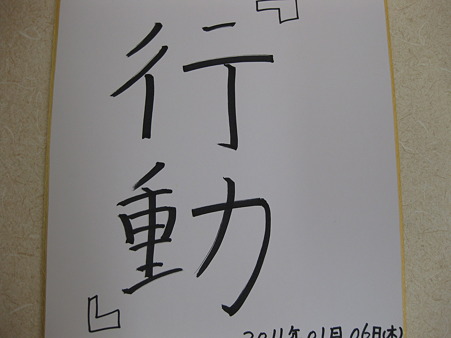 『行動』
2011年01月06日(木)